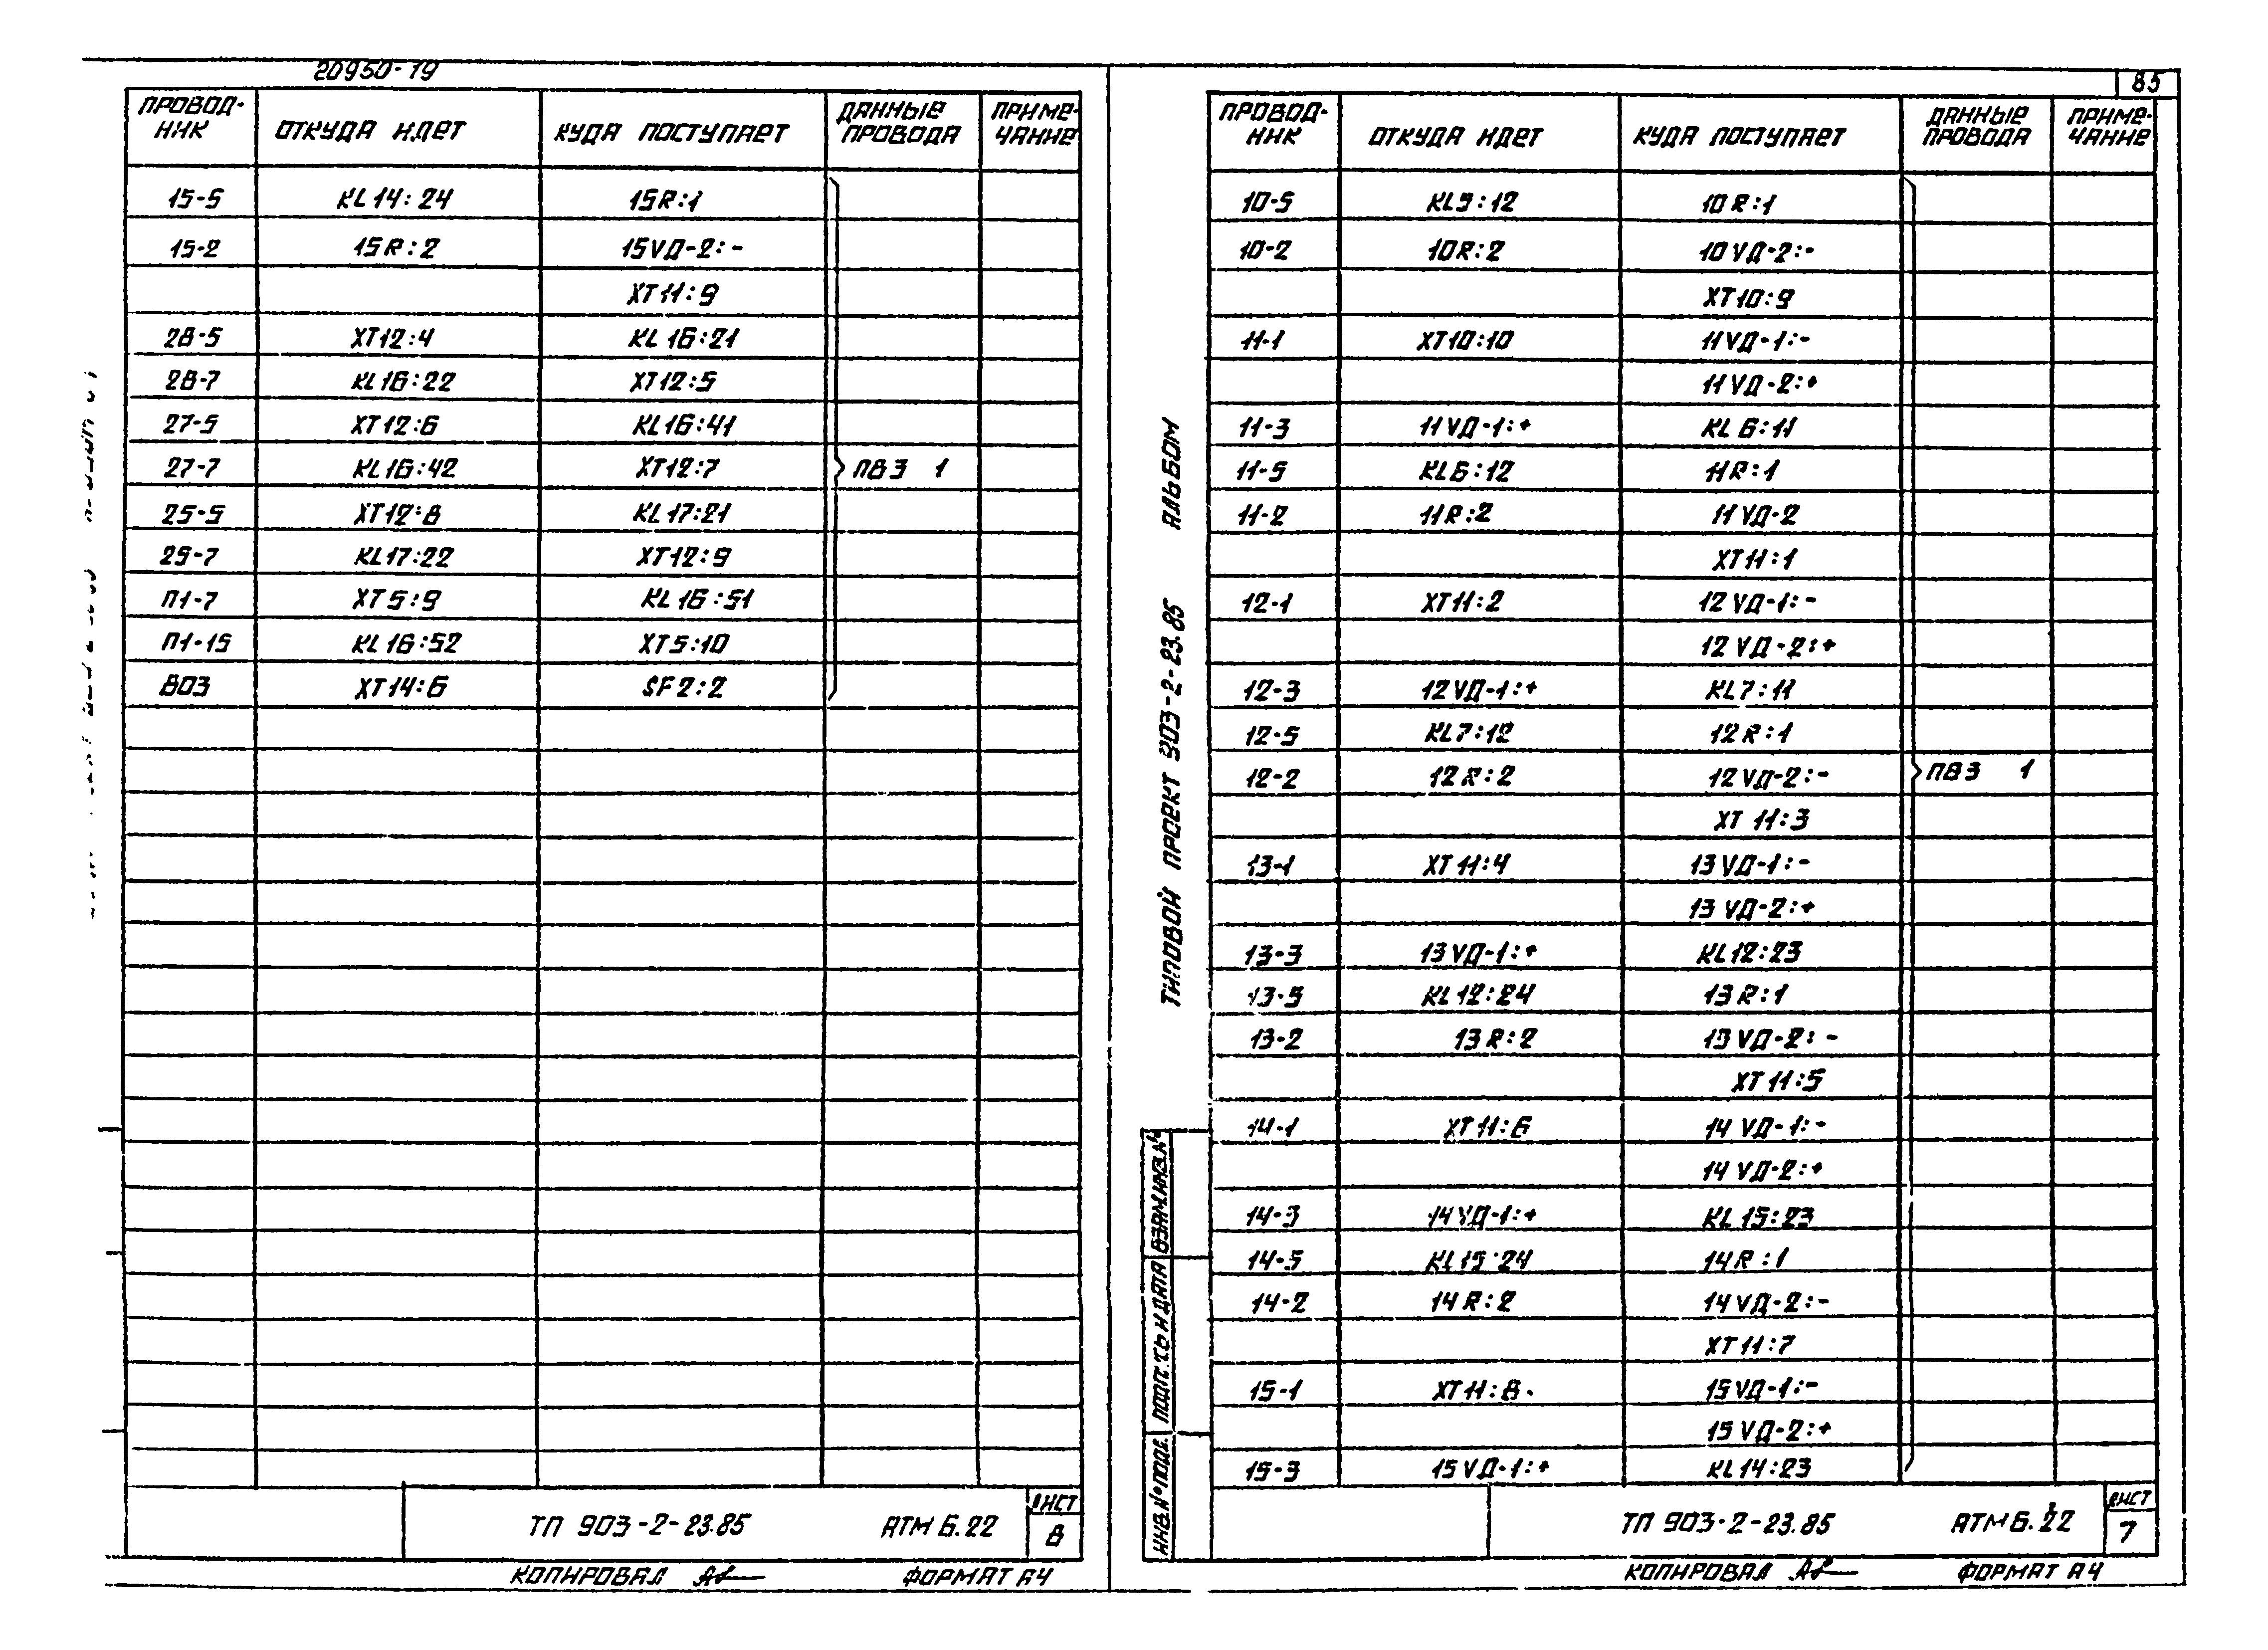 20950-19
ПРОВОД-НИК ОТКУДА ИДЕТ КУДА ПОСТУПАЕТ ДАННЫЕ ПРОВОДА ПРИМЕ-ЧАНИЕ
15-5 KL14:24 15R:1
15-2 15R:2 15VД-2:-
XT11:9
28-5 XT12:4 KL16:21
28-7 KL16:22 XT12:5
27-5 XT12:6 KL16:41
27-7 KL16:42 XT12:7 ПВ3 1
25-5 XT12:8 KL17:21
25-7 KL17:22 XT12:9
П1-7 XT5:9 KL16:51
П1-15 KL16:52 XT5:10
803 XT14:6 SF2:2
ТП 903-2-23.85 АТМ6.22 ЛИСТ 8
КОПИРОВАЛ ФОРМАТ А4
85
ПРОВОД-НИК ОТКУДА ИДЕТ КУДА ПОСТУПАЕТ ДАННЫЕ ПРОВОДА ПРИМЕ-ЧАНИЕ
10-5 KL5:12 10R:1
10-2 10R:2 10VД-2:-
XT10:9
11-1 XT10:10 11VД-1:-
11VД-2:+
11-3 11VД-1:+ KL6:11
11-5 KL6:12 11R:1
11-2 11R:2 11VД-2
XT11:1
12-1 XT11:2 12VД-1:-
12VД-2:+
12-3 12VД-1:+ KL7:11
12-5 KL7:12 12R:1
12-2 12R:2 12VД-2:- ПВ3 1
XT11:3
13-1 XT11:4 13VД-1:-
13VД-2:+
13-3 13VД-1:+ KL12:23
13-5 KL12:24 13R:1
13-2 13R:2 13VД-2:-
XT11:5
14-1 XT11:6 14VД-1:-
14VД-2:+
14-3 14VД-1:+ KL15:23
14-5 KL15:24 14R:1
14-2 14R:2 14VД-2:-
XT11:7
15-1 XT11:8 15VД-1:-
15VД-2:+
15-3 15VД-1:+ KL14:23
ТП 903-2-23.85 АТМ6.22 ЛИСТ 7
КОПИРОВАЛ ФОРМАТ А4
ТИПОВОЙ ПРОЕКТ 903-2-23.85 АЛЬБОМ
ИНВ.№ПОДЛ. ПОДП.ТЬ И ДАТА ВЗАМ.ИНВ.№